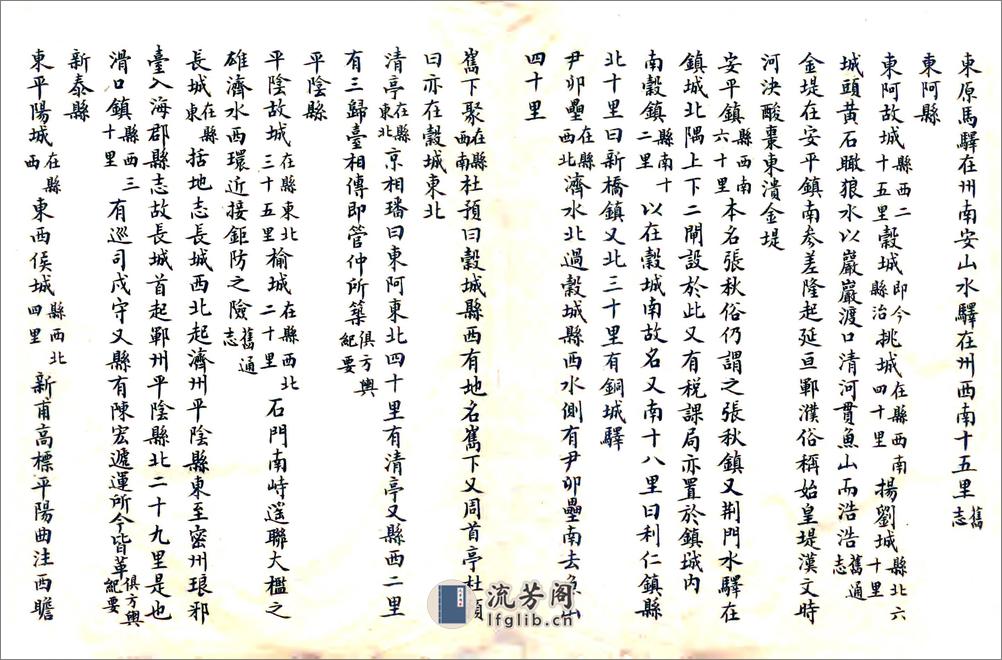 東原馬驛在州南安山水驛在州西南十五里舊志
東阿縣
東阿故城縣西二十五里穀城即今縣治挑城在縣西南四十里揚劉城縣北六十里
城頭黃石瞰狼水以巖巖渡口清河貫魚山而浩浩舊通志
金堤在安平鎮南參差隆起延亘鄆濮俗稱始皇堤漢文時
河決酸棗東潰金堤
安平鎮縣西南六十里本名張秋俗仍謂之張秋鎮又荆門水驛在
鎮城北隅上下二閘設於此又有税課局亦置於鎮城内
南穀鎮縣南十二里以在穀城南故名又南十八里曰利仁鎮縣
北十里曰新橋鎮又北三十里有銅城驛
尹卯壘在縣西北濟水北過穀城縣西水側有尹卯壘南去魚山
四十里
嶲下聚在縣西南杜預曰穀城縣西有地名嶲下又周首亭杜預
曰亦在穀城東北
清亭在縣東北京相璠曰東阿東北四十里有清亭又縣西二里
有三歸臺相傳即管仲所築俱方輿紀要
平陰縣
平陰故城在縣東北三十五里榆城在縣西北二十里石門南峙遥聯大檻之
雄濟水西環近接鉅防之險舊通志
長城在縣東括地志長城西北起濟州平陰縣東至密州琅邪
臺入海郡縣志故長城首起鄆州平陰縣北二十九里是也
滑口鎮縣西三十里有巡司戍守又縣有陳宏遞運所今皆革俱方輿紀要
新泰縣
東平陽城在縣西東西侯城縣西北四里新甫高標平陽曲注西瞻
流芳阁
lfglib.cn